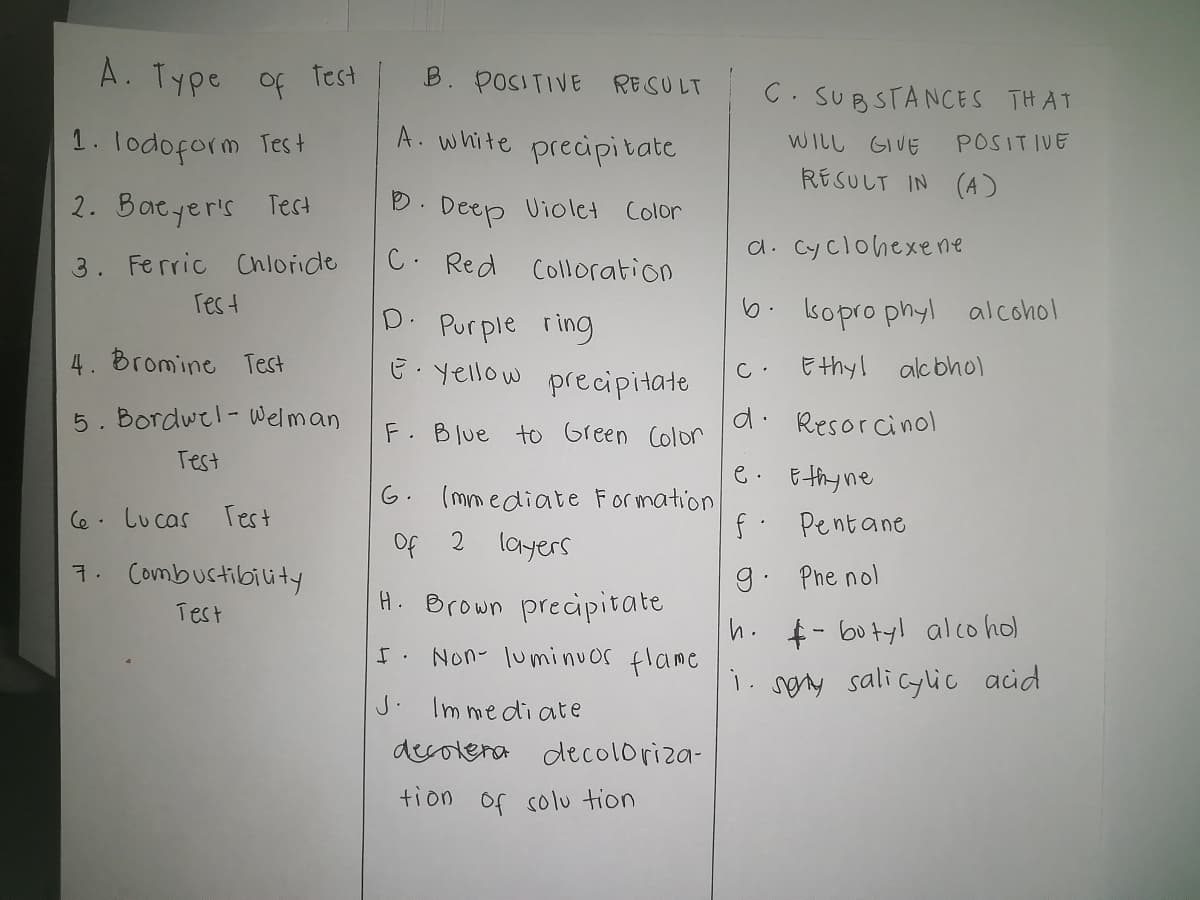 A. Type of Test
1. Iodoform Test
2. Baeyer's Test
3. Ferric Chloride
Test
4. Bromine Test
5. Bordwel-Welman
Test
6. Lucas Test
7. Combustibility
Test
B. POSITIVE RESULT
A. White precipitate
B. Deep Violet Color
C. Red Colloration
D. Purple ring
E. Yellow precipitate
F. Blue to Green Color
G. Immediate Formation
Of 2 layers
H. Brown precipitate
I. Non- luminuos flame
J. Immediate
decoloriza-
tion of solution
C. SUBSTANCES THAT
WILL GIVE POSITIVE
RESULT IN (A)
a. cyclohexene
b. Isoprophyl alcohol
c. Ethyl alcohol
d. Resorcinol
e. Ethyne
f. Pentane
g. Phenol
h. t-butyl alcohol
i. salicylic acid